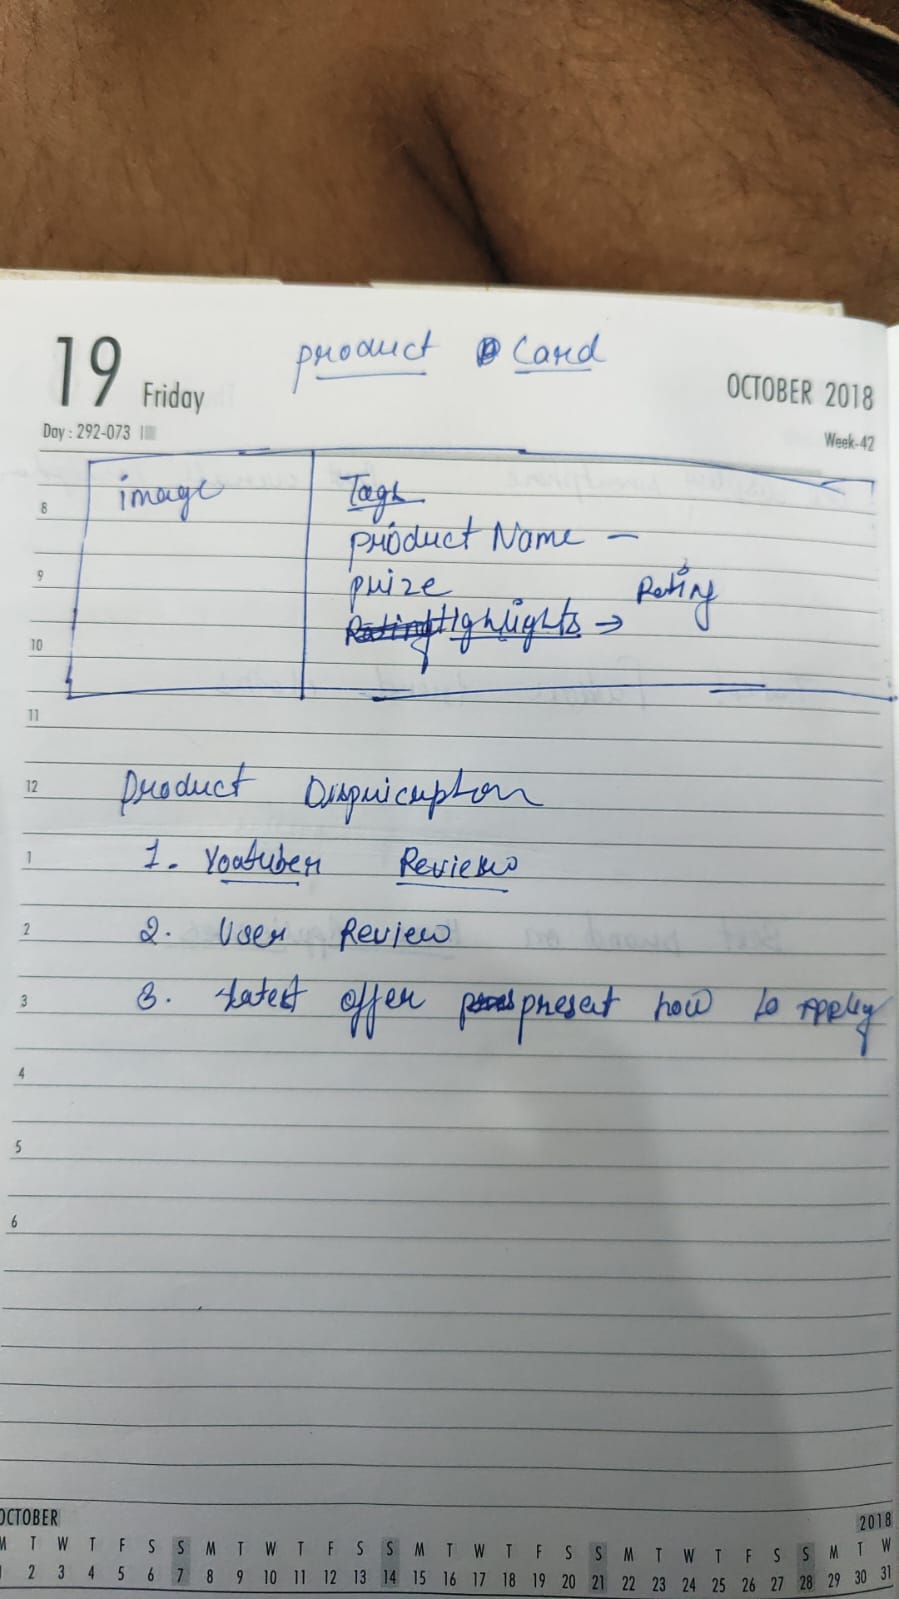 19 Friday
product Card
OCTOBER 2018
Day : 292-073
Week-42
image
Tags
product Name —
prize
Rating
Highlights →
8
9
10
11
12
product Disquicuption
1
1. Yoatuber Review
2
2. User Review
3
3. latest offer present how to Apply
4
5
6
OCTOBER
2018
M T W T F S S M T W T F S S M T W T F S S M T W T F S S M T W
1 2 3 4 5 6 7 8 9 10 11 12 13 14 15 16 17 18 19 20 21 22 23 24 25 26 27 28 29 30 31